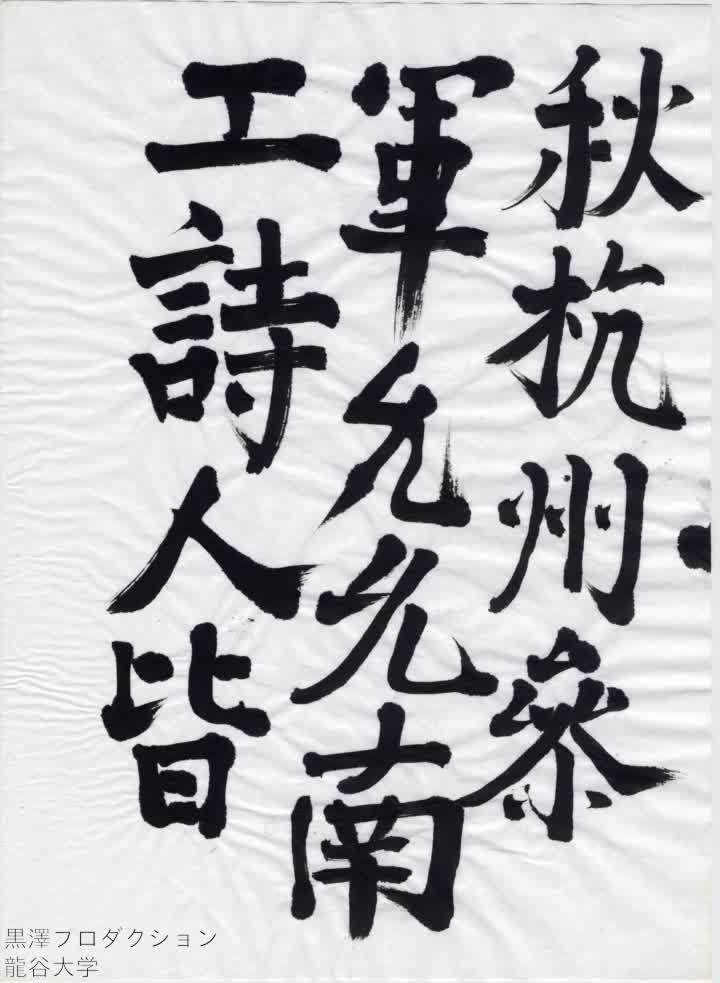 秋杭州參
軍允允南
工詩人皆
黒澤プロダクション
龍谷大学